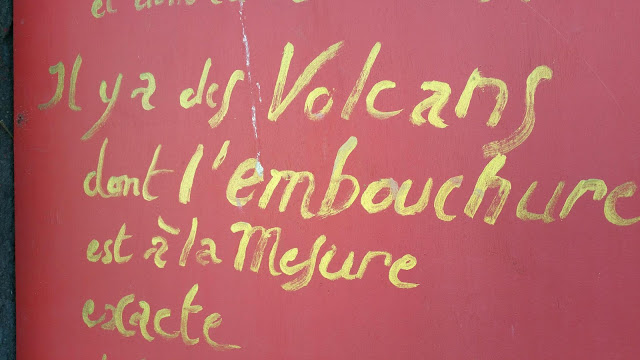 et dont
Il y a des Volcans
dont l'embouchure
est à la Mesure
exacte